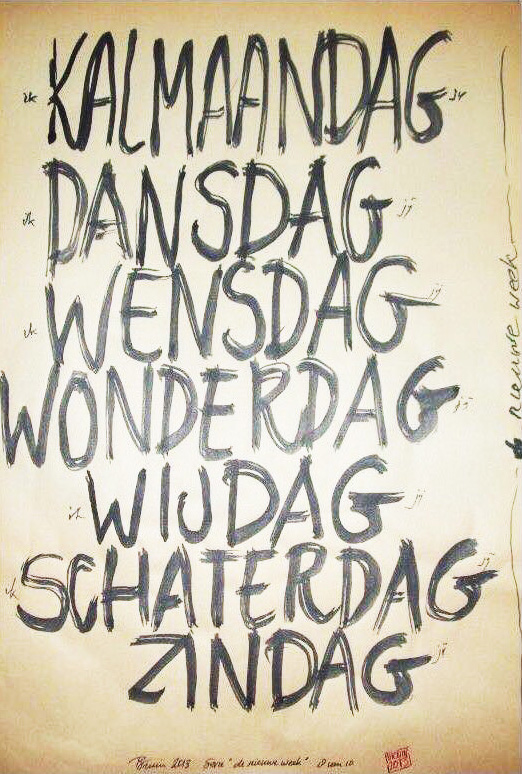 ik KALMAANDAG jij
ik DANSDAG jij
ik WENSDAG jij
WONDERDAG jij
ik WIJDAG jij
ik SCHATERDAG jij
ZINDAG jij
nieuwe week
2013 "de nieuwe week"
2013